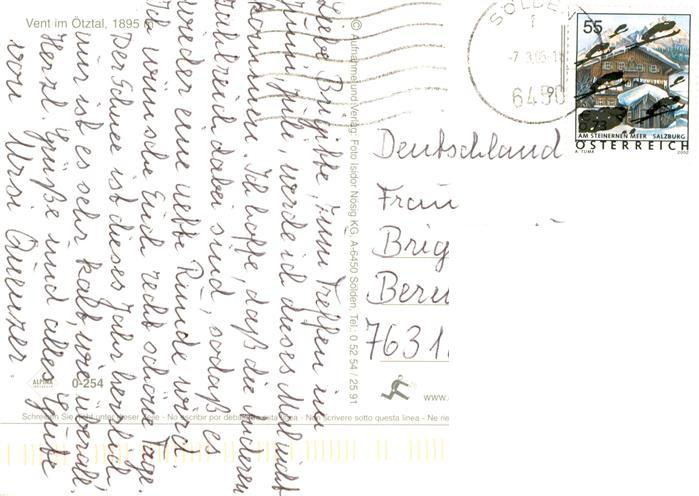 Vent im Ötztal, 1895 m
Liebe Brigitte, zum Treffen im
Juni/Juli, werde ich dieses Mal nicht
kommen. Ich hoffe, daß die anderen
zahlreich dabei sind, sodaß es
wieder eine nette Runde wird.
Ich wünsche Euch recht schöne Tage.
Der Schnee ist dieses Jahr herrlich
nur ist es sehr kalt, wie überall.
Herzl. Grüße und alles Gute
von Ursi
ALPINA
0-254
© Aufnahme und Verlag: Foto Isidor Nösig KG, A-6450 Sölden, Tel.: 0 52 54 / 25 91
SÖLDEN
-7.3.05-1
6450
55
AM STEINERNEN MEER SALZBURG
ÖSTERREICH
A. TUMA 2002
Deutschland
Frau
Brig
763
www.
Schreiben Sie nicht unter dieser Zeile - No escribir por debajo de esta - Non scrivere sotto questa linea - Ne